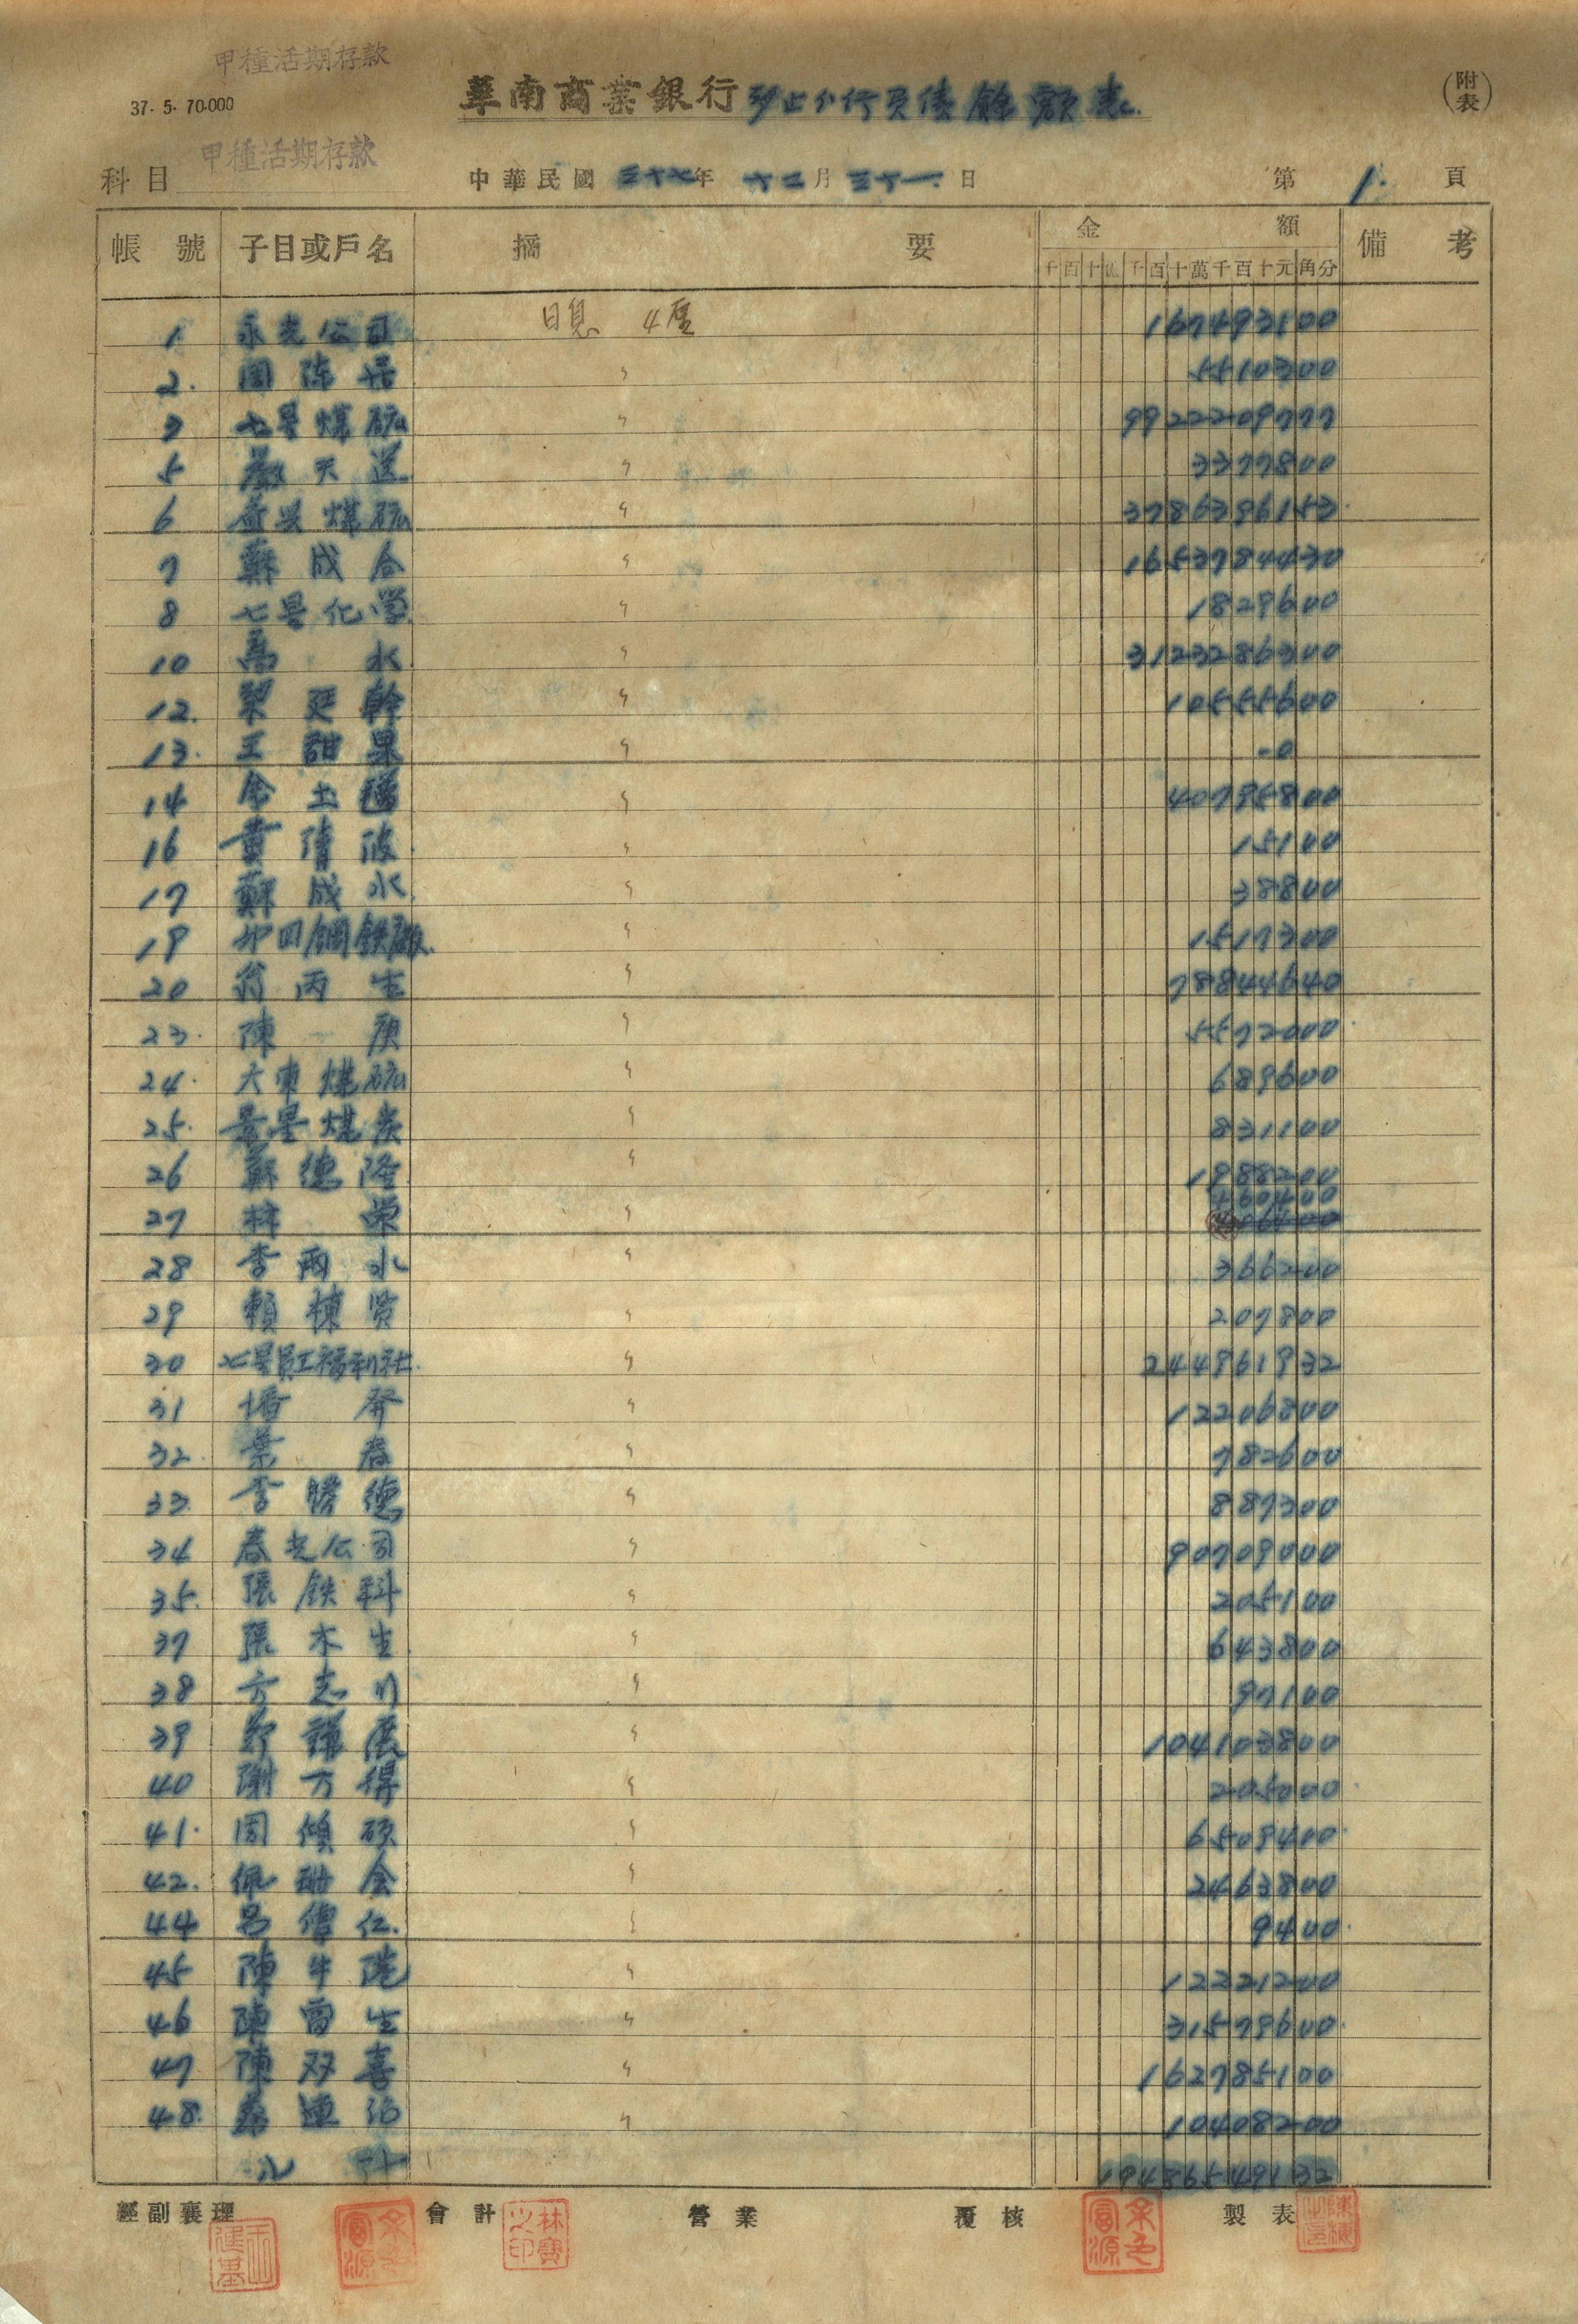 甲種活期存款
37. 5. 70.000
華南商業銀行 汐止分行負債餘額表
(附表)
科目 甲種活期存款 中華民國 三十七年 十二月 三十一日 第 1. 頁
帳號 子目或戶名 摘要 金額 備考
千百十億千百十萬千百十元角分
1. 永光公司 日息 4厘 167493100
2. 周陳 〃 5510300
3 七星煤砿 〃 9922209777
5 天送 〃 3377800
6 煤砿 〃 3786396153
7 蘇成合 〃 1653784430
8 七星化学 〃 1829600
10 高水 〃 3123286300
12. 延幹 〃 10555600
13. 王甜果 〃 -0
14 土 〃 40795800
16 黃清波 〃 15100
17 蘇成水 〃 38800
19 四鋼鉄廠 〃 1517300
20 翁丙生 〃 78844640
23. 陳庚 〃 5572000
24. 大東煤砿 〃 689600
25. 景星煤炭 〃 831100
26 蘇德隆 〃 1988200
27 林榮 〃
28 李雨水 〃 366200
29 賴棟贤 〃 207800
30 七星員工福利社. 〃 244961932
31 發 〃 12206800
32. 葉春 〃 782600
33. 李勝德 〃 887300
34 春光公司 〃 90709000
35. 張鉄科 〃 205100
37 張木生 〃 643800
38 方志川 〃 97100
39 鄭謀 〃 104103800
40 謝万得 〃 205000
41. 周碩 〃 6509400
42. 佩金 〃 2463800
44 呂仁. 〃 9400
45 陳牛港 〃 12221200
46 陳雷生 〃 31579600
47 陳双喜 〃 162785100
48. 蘇連 〃 10408200
小計 19486549132
經副襄理 會計 營業 覆核 製表
林寶之印